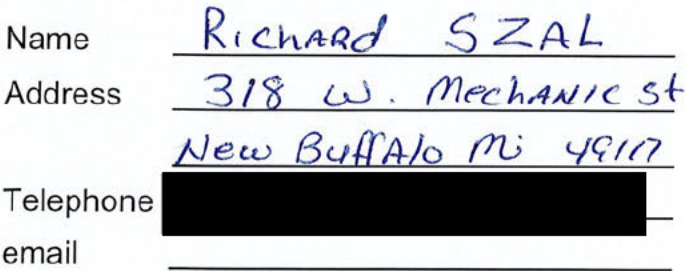 Name Richard SZAL
Address 318 W. Mechanic St
New Buffalo Mi 49117
Telephone
email